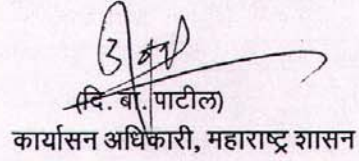 (दि. बा. पाटील)
कार्यासन अधिकारी, महाराष्ट्र शासन